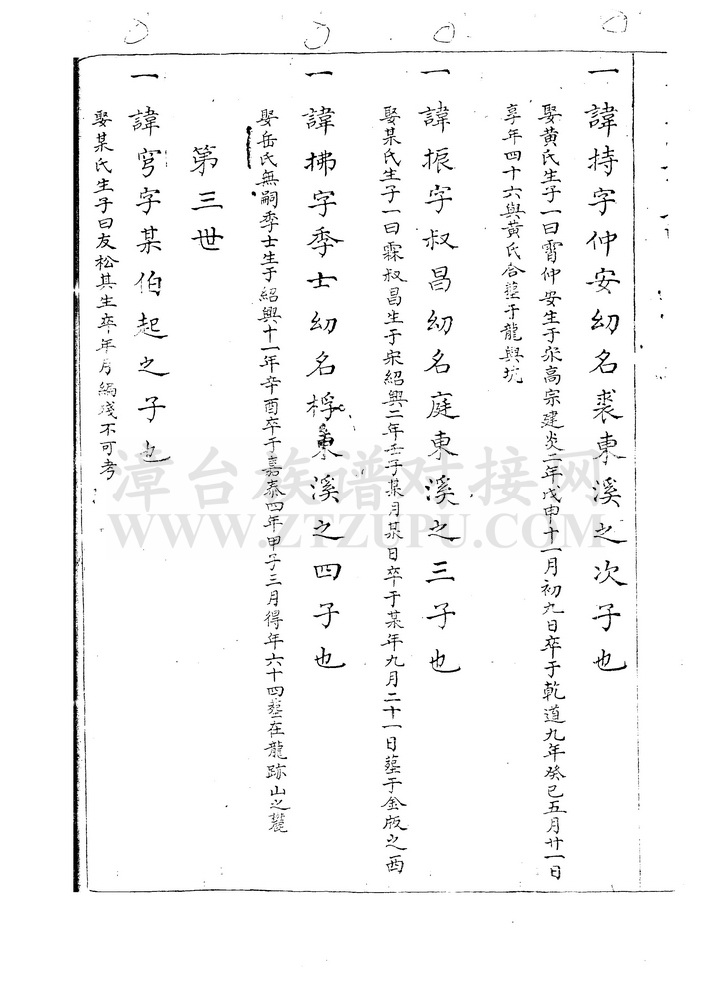 一諱持字仲安幼名裘東溪之次子也
娶黃氏生子一曰霄仲安生于宋高宗建炎二年戊申十一月初九日卒于乾道九年癸巳五月廿一日
享年四十六與黃氏合塟于龍興坑
一諱振字叔昌幼名庭東溪之三子也
娶某氏生子一曰霖叔昌生于宋紹興二年壬子某月某日卒于某年九月二十一日塟于金版之西
一諱拂字季士幼名桴東溪之四子也
娶岳氏無嗣季士生于紹興十一年辛酉卒于嘉泰四年甲子三月得年六十四塟在龍跡山之麓
第三世
一諱穹字某伯起之子也
娶某氏生子曰友松其生卒年月編殘不可考
漳台族谱对接网
WWW.ZTZUPU.COM